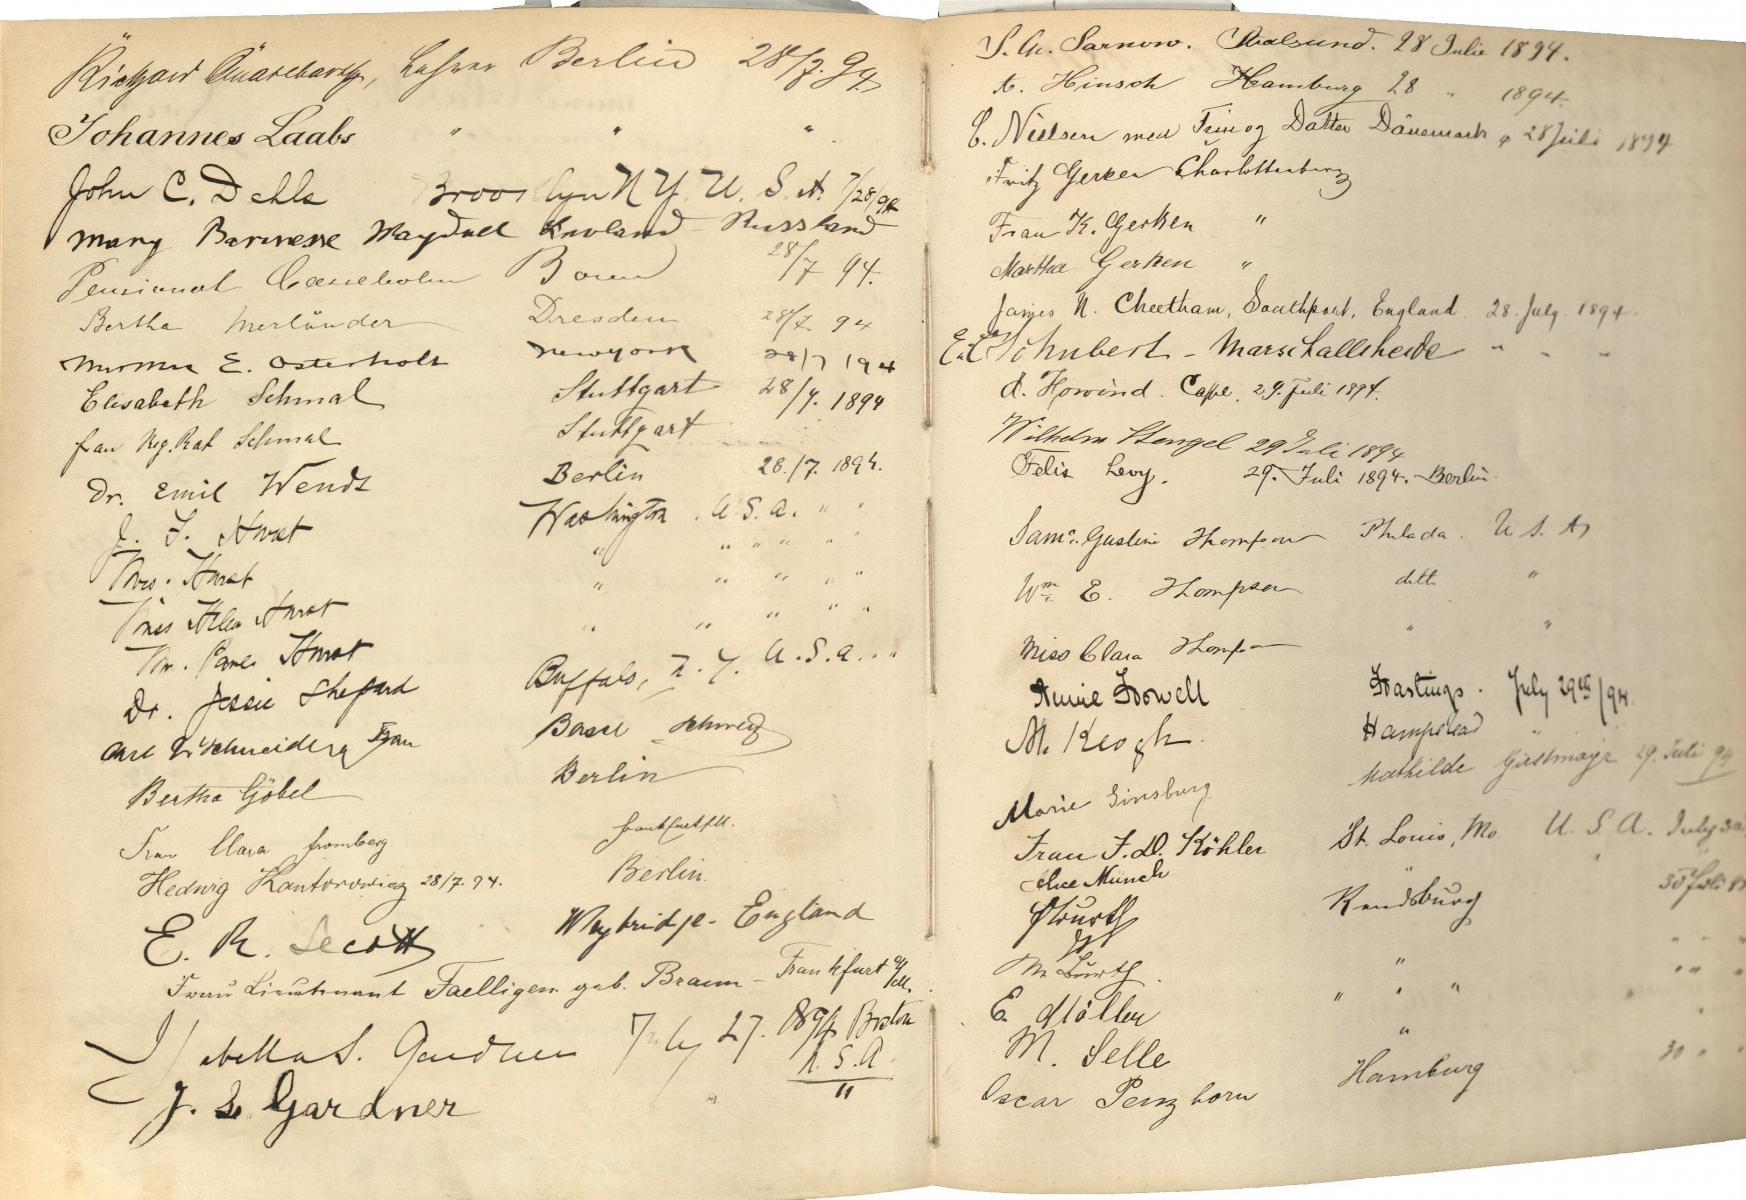 Richard Lehrer Berlin 28/7. 94.
Johannes Laabs " " "
John C. Dehls Brooklyn N Y. U. S. A. 7/28/94
Mary Baronesse Maydell Livland - Russland
Pensionat Bonn 28/7 94.
Bertha Merländer Dresden 28/7 94
E. Osterholt New york 28/7 1894
Elisabeth Schmal Stuttgart 28/7. 1894
Frau Reg. Rat Schmal Stuttgart
Dr. Emil Wendt Berlin 28./7. 1894.
J. F. Hurst Washington. U. S. A. " "
Mrs. Hurst " " " " " "
Miss Helen Hurst " " " " "
Mr. Hurst " " " " "
Dr. Jessie Shepard Buffalo, N. Y. U. S. A. " "
Carl Schneider & Frau Basel Schweiz
Bertha Göbel Berlin
Frau Clara Fromberg Frankfurt a/M.
Hedwig Kantorowicz 28/7. 94. Berlin.
E. R. Secott Weybridge - England
Frau Lieutenant Faelligen geb. Braun - Frankfurt a/M.
Isabella S. Gardner July 27. 1894 Boston U. S. A.
J. L. Gardner " "
Sarnow. Stralsund. 28 Julie 1894.
A. Hinsch Hamburg 28 " 1894.
C. Nielsen med Frue og Datter Dänemark 28 Juli 1894
Fritz Gerken Charlottenburg
Frau K. Gerken "
Martha Gerken "
James N. Cheetham, Southport, England 28. July. 1894.
Schubert - Marschallsheide " " "
A. Howind. Cassel. 29. Juli 1894.
Wilhelm Stengel 29 Juli 1894
Felix Levy. 29. Juli 1894. Berlin.
Saml. Gustine Thompson Philada. U. S. A.
Wm. E. Thompson ditto "
Miss Clara Thompson " "
Annie Howell Hastings. July 29th/94.
M. Keogh. Hampstead "
Mathilde 29. Juli 94
Marie Ginsburg
Frau F. D. Köhler St. Louis, Mo. U. S. A. July 30
Alice Münch " "
Rendsburg 30 Juli
" " " "
E. Möller " " " " "
M. Selle "
Oscar Penzhorn Hamburg 30 " "